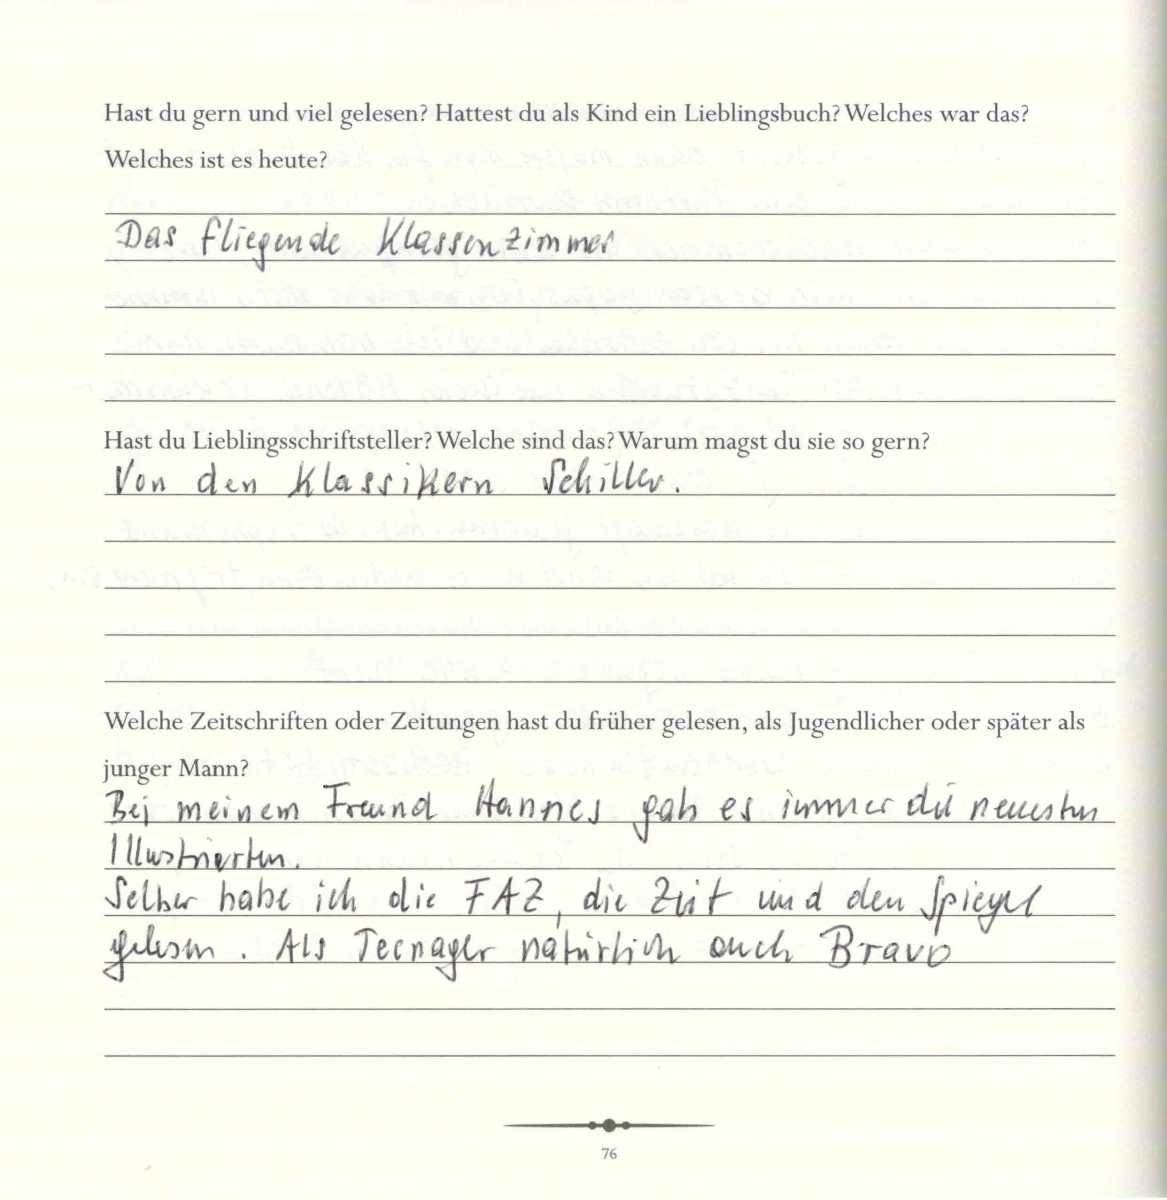 Hast du gern und viel gelesen? Hattest du als Kind ein Lieblingsbuch? Welches war das?
Welches ist es heute?
Das fliegende Klassenzimmer
Hast du Lieblingsschriftsteller? Welche sind das? Warum magst du sie so gern?
Von den Klassikern Schiller.
Welche Zeitschriften oder Zeitungen hast du früher gelesen, als Jugendlicher oder später als
junger Mann?
Bei meinem Freund Hannes gab es immer die neuesten
Illustrierten.
Selber habe ich die FAZ, die Zeit und den Spiegel
gelesen. Als Teenager natürlich auch Bravo
76